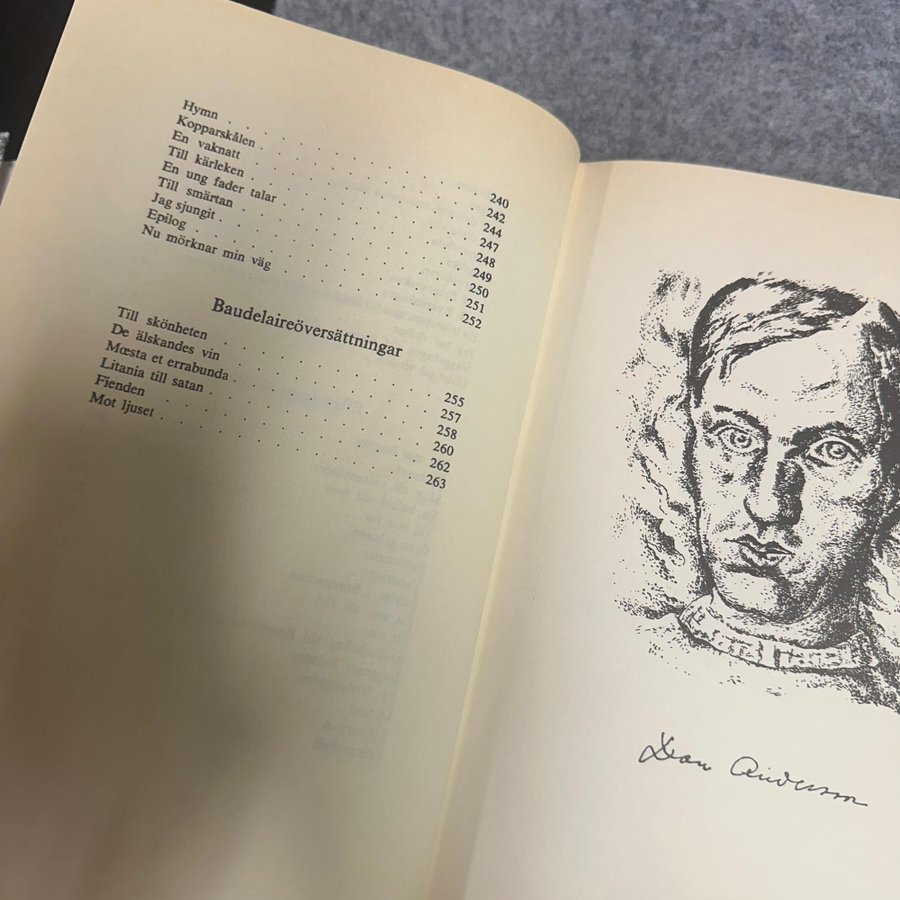 Hymn . . . . . . . . . . . . . . . 240
Kopparskålen . . . . . . . . . . . . . . . 242
En vaknatt . . . . . . . . . . . . . . . 244
Till kärleken . . . . . . . . . . . . . . . 247
En ung fader talar . . . . . . . . . . . . . . . 248
Till smärtan . . . . . . . . . . . . . . . 249
Jag sjungit . . . . . . . . . . . . . . . 250
Epilog . . . . . . . . . . . . . . . 251
Nu mörknar min väg . . . . . . . . . . . . . . . 252
Baudelaireöversättningar
Till skönheten . . . . . . . . . . . . . . . 255
De älskandes vin . . . . . . . . . . . . . . . 257
Mœsta et errabunda . . . . . . . . . . . . . . . 258
Litania till satan . . . . . . . . . . . . . . . 260
Fienden . . . . . . . . . . . . . . . 262
Mot ljuset . . . . . . . . . . . . . . . 263
Dan Andersson